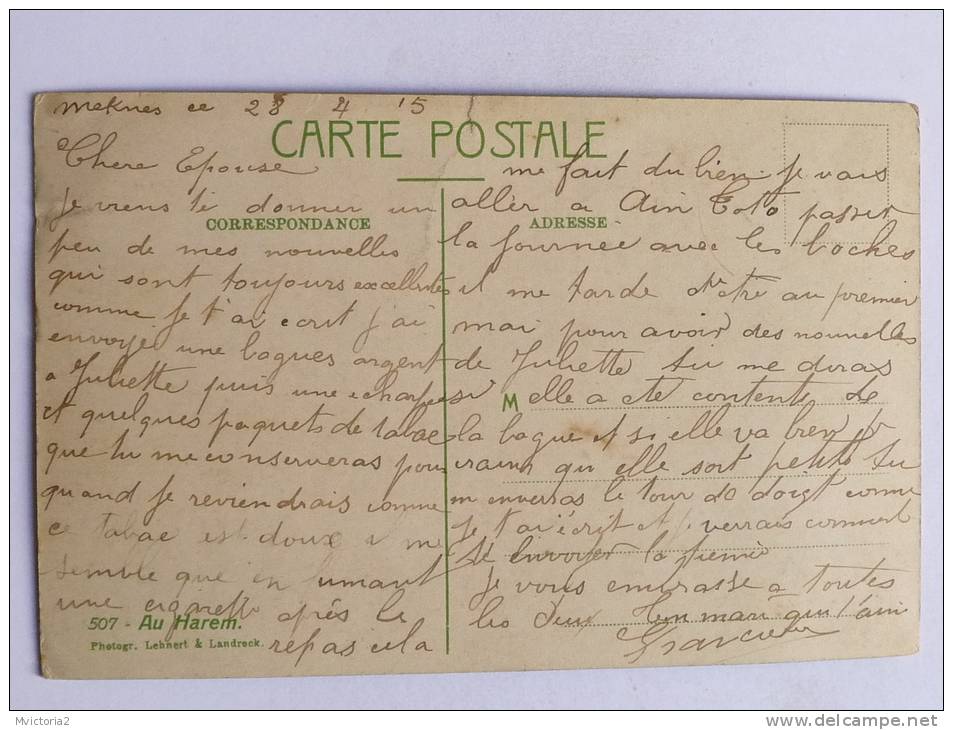 Meknes ce 28 4 15
CARTE POSTALE
Chere Epouse
CORRESPONDANCE
je viens te donner un
peu de mes nouvelles
qui sont toujours excellentes
comme je t'ai ecrit j'ai
envoyé une bagues argent
a Juliette puis une echarpe
et quelques paquets de tabac
que tu me conserveras pour
quand je reviendrais comme
ce tabac est doux il me
semble que en fumant
une cigarette après le
repas cela
507 - Au Harem.
Photogr. Lehnert & Landrock.
me fait du bien je vais
aller a Ain Toto passer
ADRESSE
la journee avec les boches
il me tarde d'etre au premier
mai pour avoir des nouvelles
de Juliette tu me diras
M
si elle a ete contente de
la bague et si elle va bien je
crains qu'elle soit petite tu
m enverras le tour de doigt comme
je t'ai écrit et je verrais comment
envoyer la
je vous embrasse a toutes
les deux Ton mari qui t'aime
Mvictoria2
www.delcampe.net